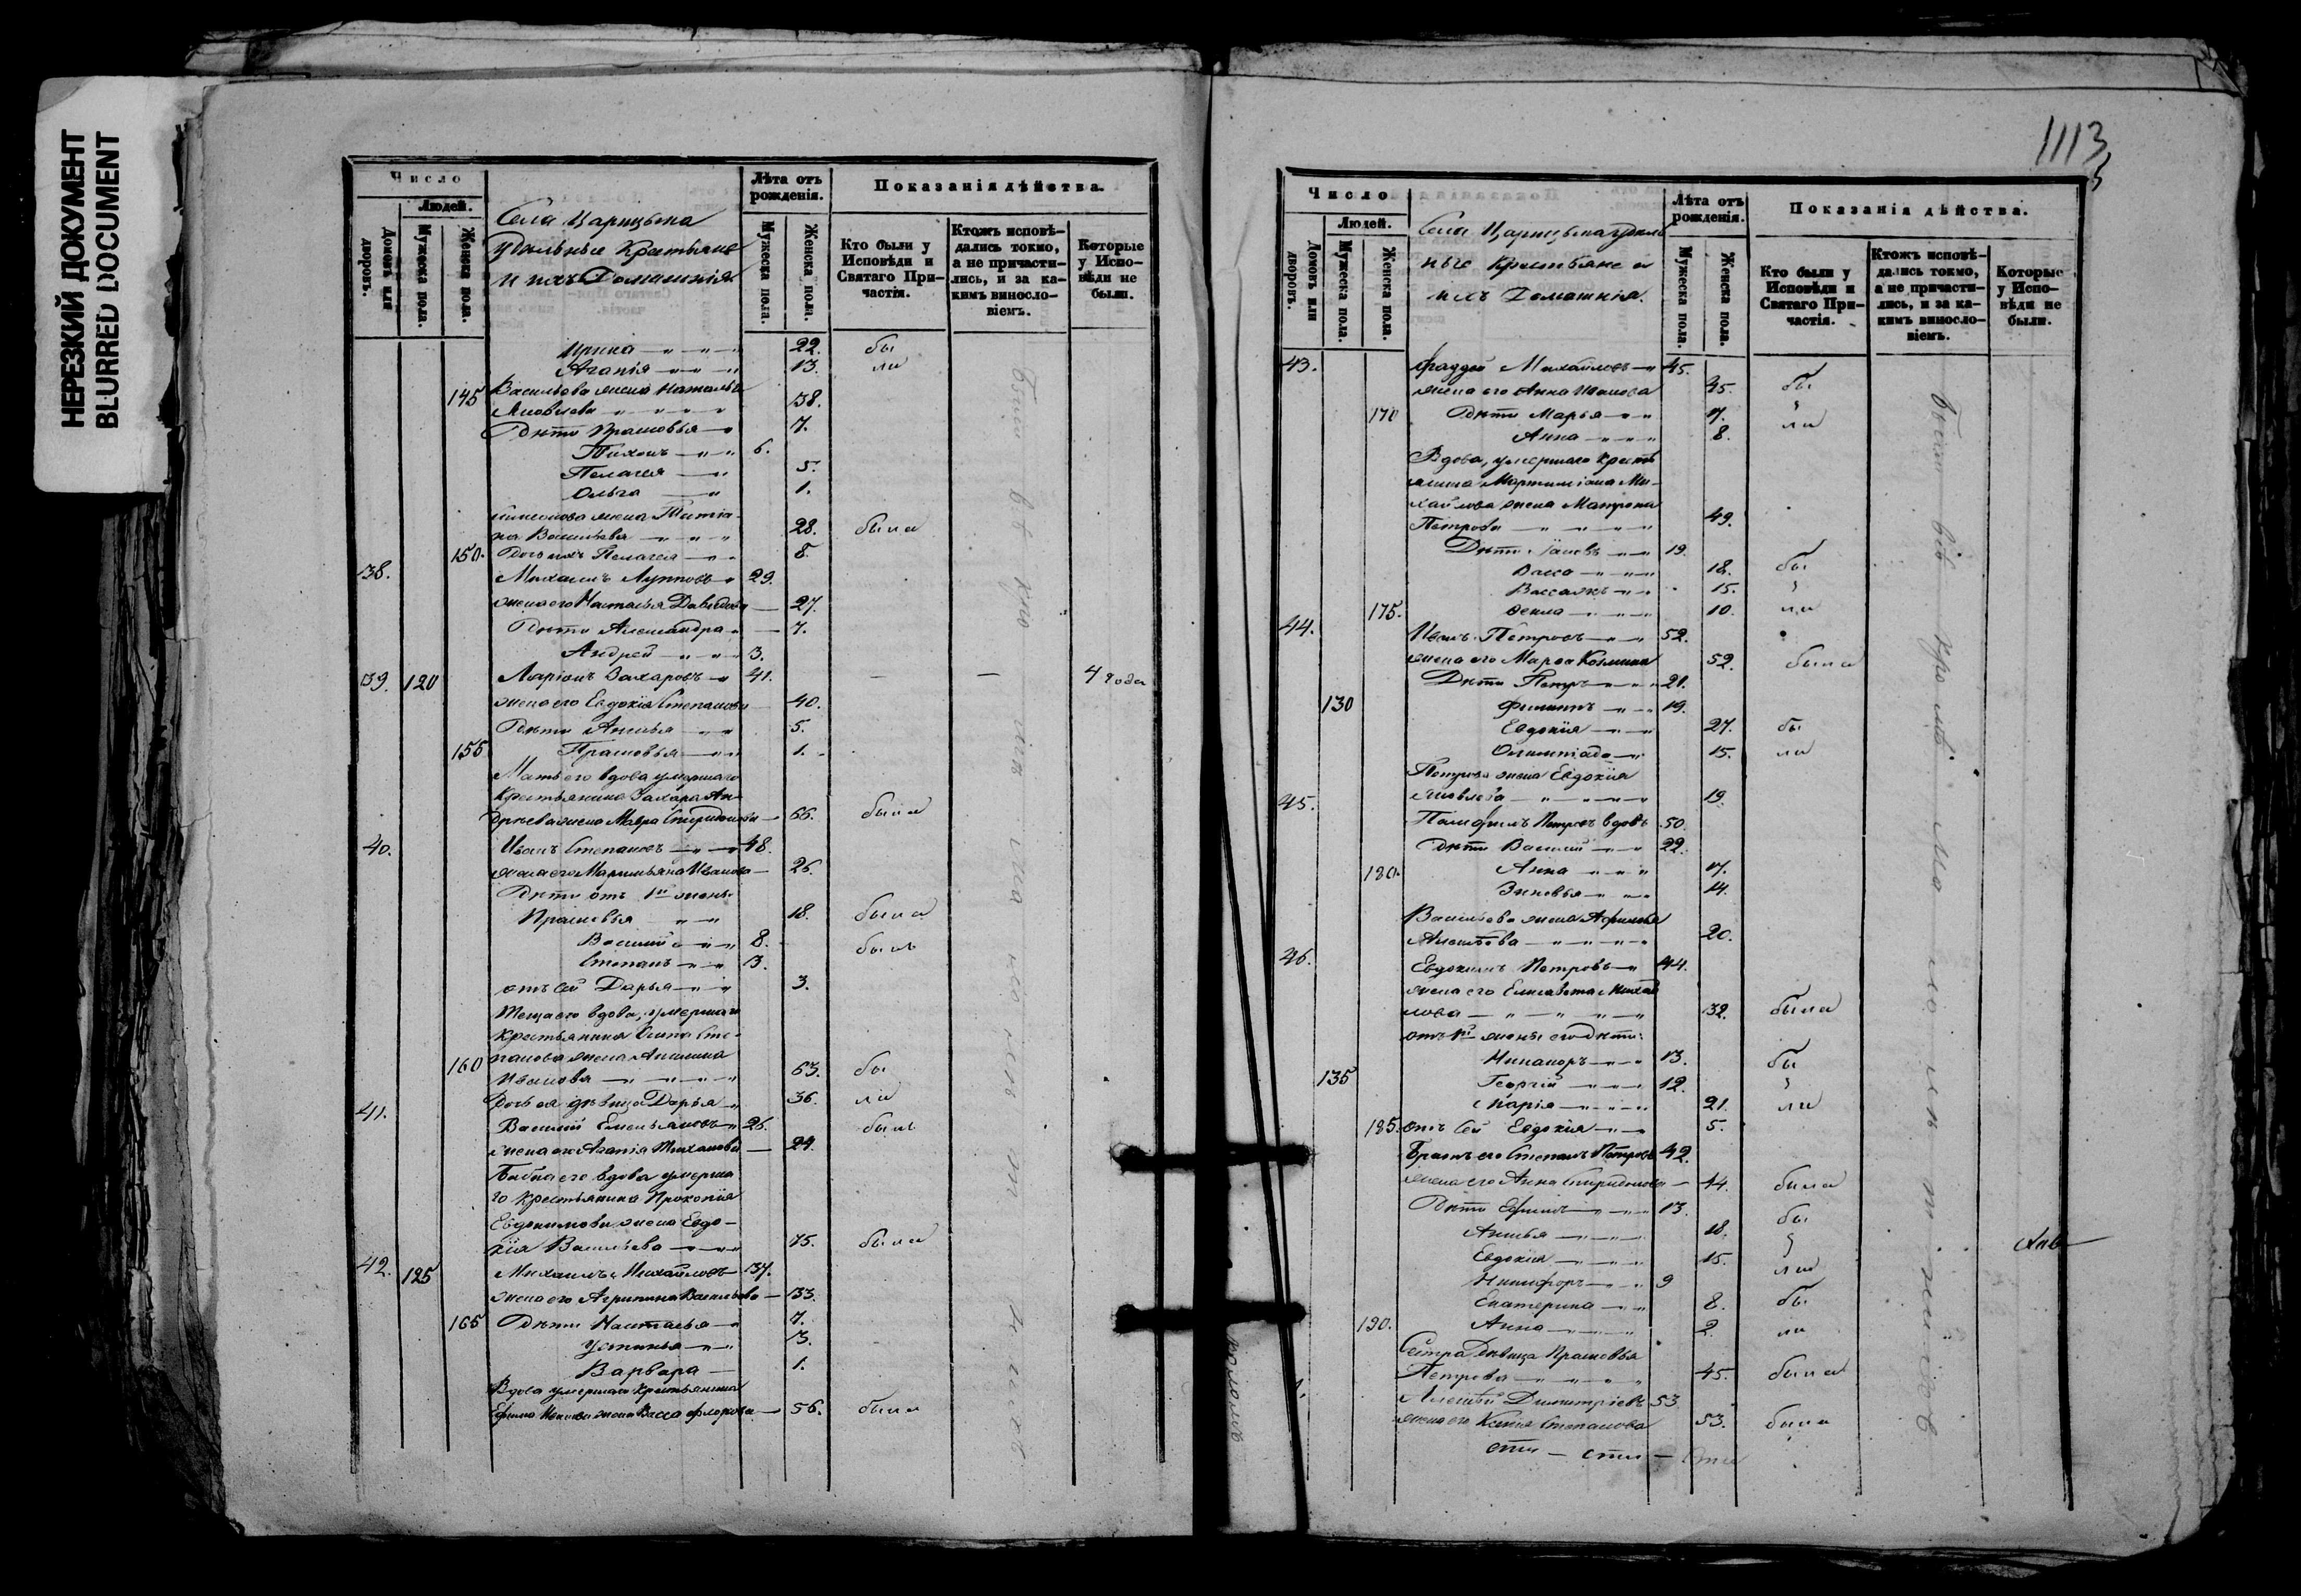 НЕРЕЗКИЙ ДОКУМЕНТ
BLURRED DOCUMENT
Число
Людей.
Домовъ или дворовъ.
Мужеска пола.
Женска пола.
Села Царицына
удѣльные Крестьяне
и ихъ Домашнія
Лѣта отъ рожденія.
Мужеска пола.
Женска пола.
Показанія дѣйства.
Кто были у Исповѣди и Святаго Причастія.
Ктожъ исповѣдались токмо, а не причастились, и за какимъ винословіемъ.
Которые у Исповѣди не были.
Ирина 22. бы
Агапія 13. ли
145 Васильева жена Наталья
Яковлева 38.
Дѣти Прасковья 7.
Тихонъ 6.
Пелагея 5.
Ольга 1.
Симеонова жена Татіа-
на Васильева 28. была
150. Дочь ихъ Пелагея 8.
38. Михаилъ Лупповъ 29.
жена его Наталья Давыдова 27.
Дѣти Александра 7.
Андрей 3.
39. 120 Ларіонъ Захаровъ 41. — — 4 года
жена его Евдокія Степанова 40.
Дѣти Анисья 5.
155 Прасковья 1.
Мать его вдова умершаго
Крестьянина Захара Ан-
дреева жена Мавра Спиридонова 66. была
40. Иванъ Степановъ 48.
жена его Маримьяна Иванова 26.
Дѣти отъ 1й жены
Прасковья 18. была
Василій 8. былъ
Степанъ 3.
отъ сей Дарья 3.
Теща его вдова, умершаго
Крестьянина Осипа Сте-
160 панова жена Акилина
Иванова 63. бы
Дочь ея дѣвица Дарья 36. ли
41. Василій Емельяновъ 26. былъ
жена его Агапія Тихонова 24.
Бабка его вдова умерша-
го Крестьянина Прокопія
Евдокимова жена Евдо-
кія Васильева 75. была
42. 125 Михаилъ Михайловъ 37.
жена его Агрипина Васильева 33.
165 Дѣти Настасья 7.
Устинья 3.
Варвара 1.
Вдова умершаго Крестьянина
Ефима Иванова жена Васса Флорова 56. была
1113
Число
Людей.
Домовъ или дворовъ.
Мужеска пола.
Женска пола.
Села Царицына удѣль
ные Крестьяне и
ихъ Домашнія.
Лѣта отъ рожденія.
Мужеска пола.
Женска пола.
Показанія дѣйства.
Кто были у Исповѣди и Святаго Причастія.
Ктожъ исповѣдались токмо, а не причастились, и за какимъ винословіемъ.
Которые у Исповѣди не были.
43. Фаддей Михайловъ 45.
жена его Анна Иванова 45. бы
170 Дѣти Марья 17. ли
Анна 8.
Вдова, умершаго Кресть
янина Мартиміана Ми-
хайлова жена Матрона
Петрова 49.
Дѣти Іаковъ 19.
Васса 18. бы
15.
175. Ѳекла 10. ли
44. Иванъ Петровъ 52.
жена его Марѳа Козмина 52. была
Дѣти Петръ 21.
130 Филиппъ 19.
Евдокія 27. бы
Олимпіада 15. ли
Петрова жена Евдокія
Яковлева 19.
45. Памфилъ Петровъ вдовъ 50.
Дѣти Василій 22.
180. Анна 17.
Зиновья 14.
Васильева жена Афимья
Алексѣева 20.
46. Евдокимъ Петровъ 44.
жена его Елисавета Михай
лова 32. была
отъ 1й жены его дѣти:
Никаноръ 13. бы
135 Георгій 12.
Марія 21. ли
185. отъ Сей Евдокія 5.
Братъ его Степанъ Петровъ 42.
жена его Анна Спиридонова 44. была
Дѣти Ефимъ 13. бы
Анисья 18.
Евдокія 15. ли
Никифоръ 9
Екатерина 8. бы
190. Анна 2. ли
Сестра Дѣвица Прасковья
Петрова 45. была
Алексѣй Димитріевъ 53
жена его Ксенія Степанова 53. была